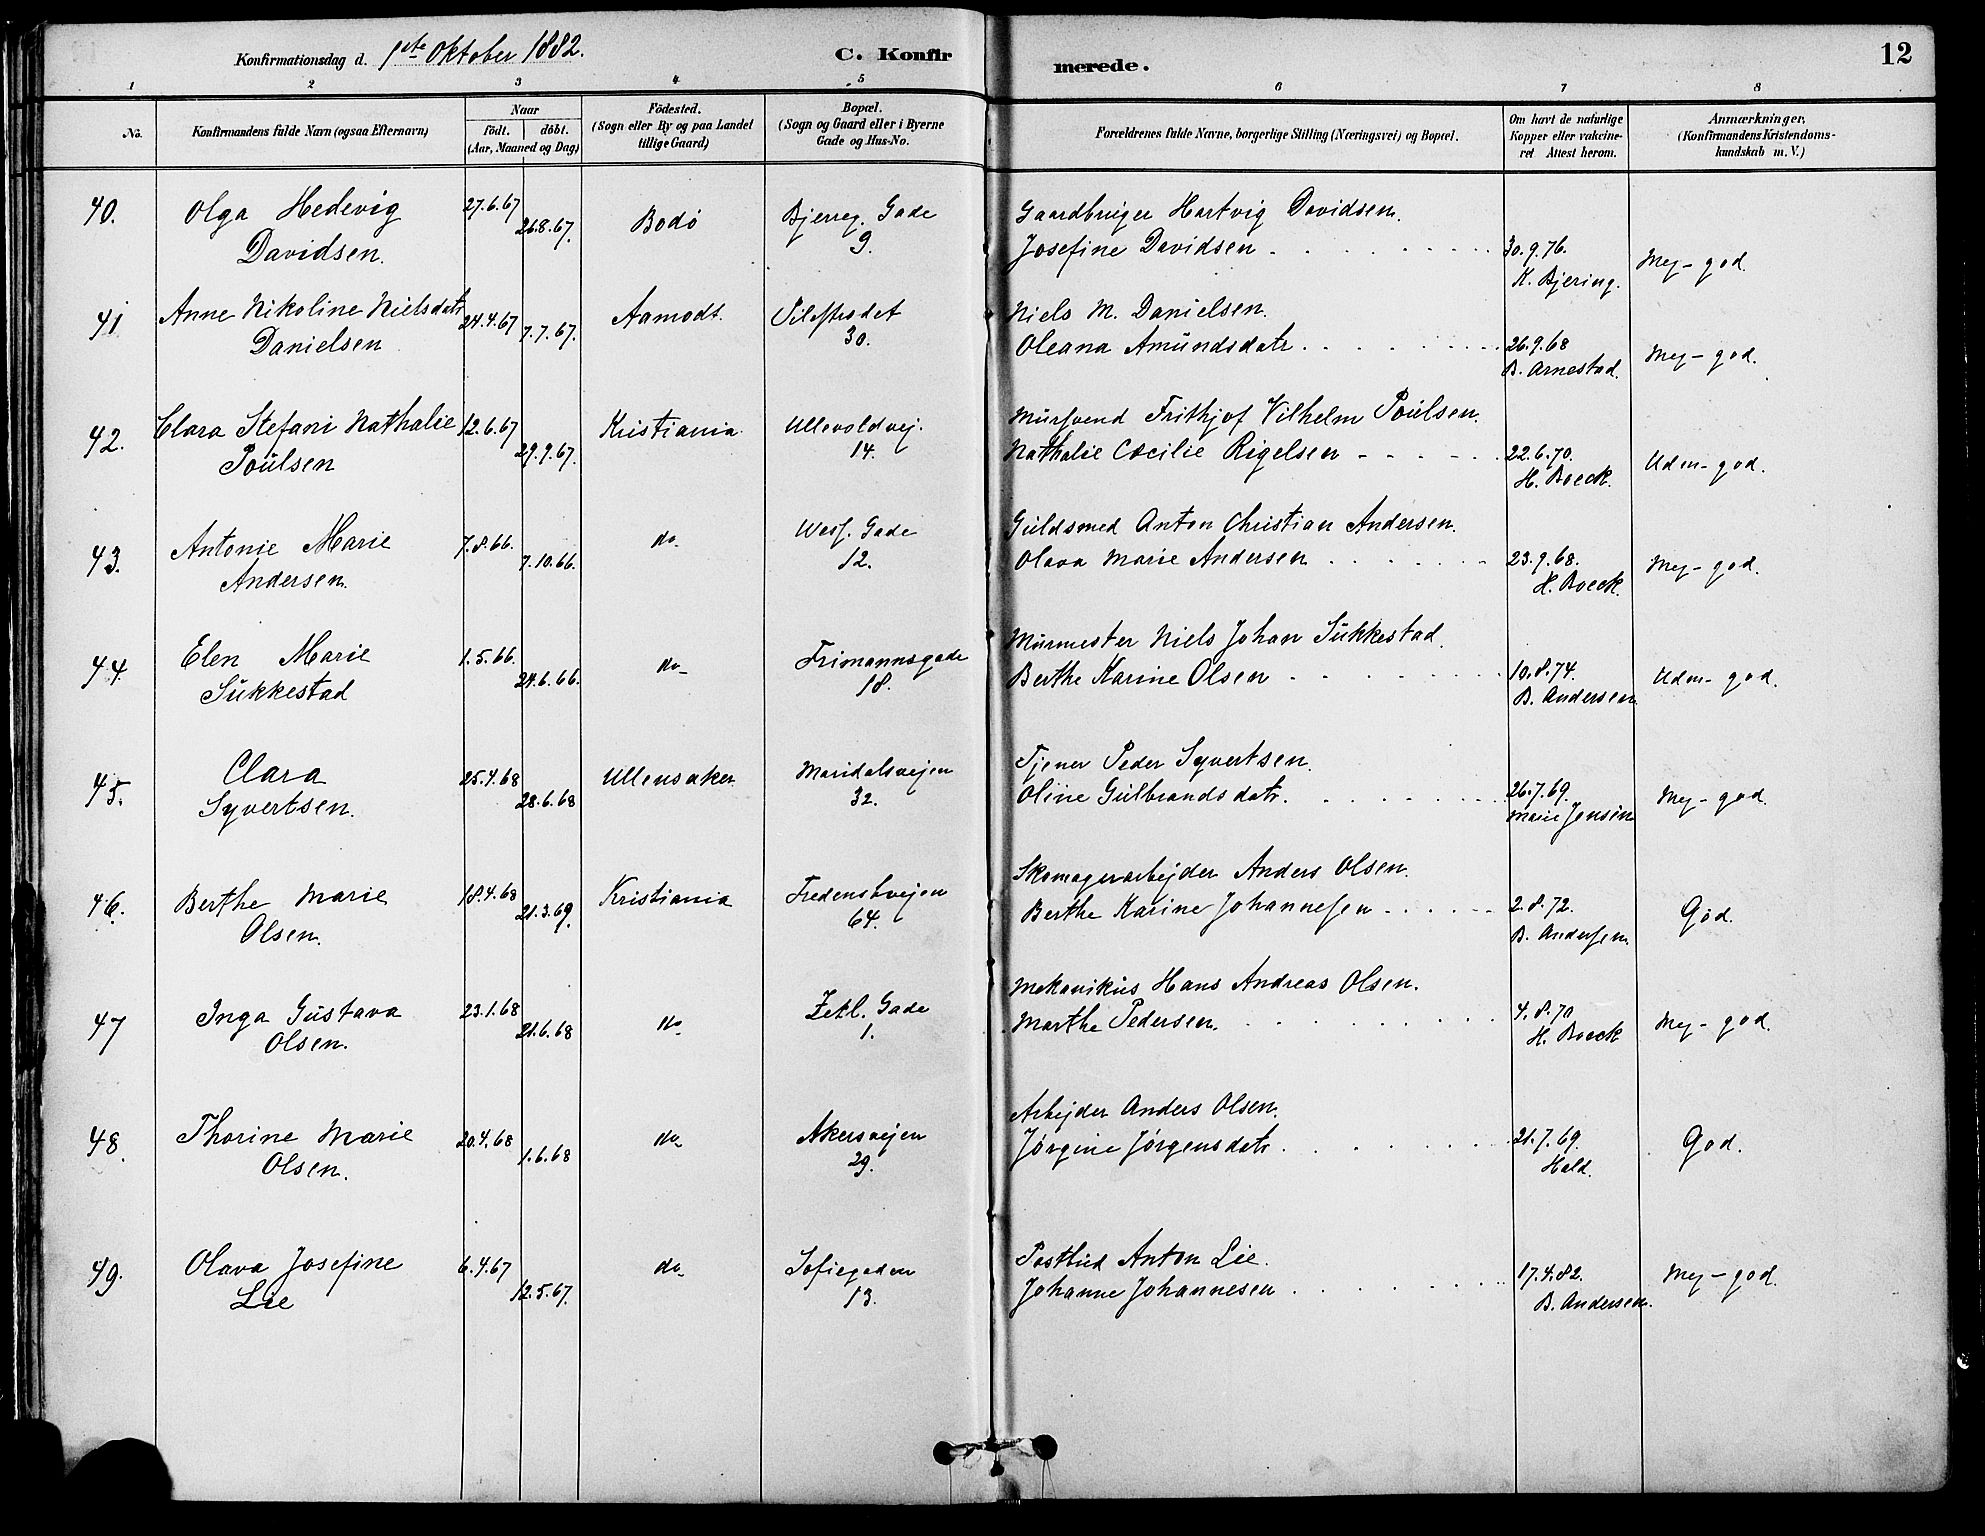 Konfirmationsdag d. 1ste Oktober 1882.
C. Konfirmerede.
12
1 2 3 4 5 6 7 8
No.
Konfirmandens fulde Navn (ogsaa Efternavn)
Naar
födt. döbt.
(Aar, Maaned og Dag)
Födested.
(Sogn eller By og paa Landet
tillige Gaard)
Bopæl.
(Sogn og Gaard eller i Byerne
Gade og Hus-No.
Forældrenes fulde Navne, borgerlige Stilling (Næringsvei) og Bopæl.
Om havt de naturlige
Kopper eller vakcine-
ret Attest herom.
Anmærkninger.
(Konfirmandens Kristendoms-
kundskab m. V.)
40. Olga Hedevig 27.6.67 26.8.67. Bodö Bjerreg. Gade Gaardbruger Hartvig Davidsen.
Davidsen. 9. Josefine Davidsen 30.9.76. Meg-god.
K. Bjering.
41. Anne Nikoline Nielsdatr 24.4.67 7.7.67. Aamodt. Pilestrædet Niels M. Danielsen.
Danielsen 30. Oleana Amundsdatr. 26.9.68 Meg-god.
B. Arnestad.
42. Clara Stefani Nathalie 12.6.67 29.9.67. Kristiania Ullevoldvej. Mursvend Frithjof Vilhelm Poulsen.
Poulsen 14. Nathalie Cæcilie Rigelsen 22.6.70. Udm-god.
H. Boeck.
43. Antonie Marie 7.8.66. 7.10.66. do Wess. Gade Guldsmed Anton Christian Andersen.
Andersen. 12. Olava Marie Andersen 23.9.68. Meg-god.
H. Boeck.
44. Elen Marie 1.5.66. 24.6.66. do Frimannsgade Murmester Niels Johan Sukkestad.
Sukkestad 18. Berthe Karine Olsen 10.8.74. Udm-god.
B. Andersen.
45. Clara 25.4.68 28.6.68 Ullensaker Maridalsvejen Tjener Peder Syvertsen.
Syvertsen. 32. Oline Gulbrandsdatr. 26.7.69. Meg-god.
Marie Jensen
46. Berthe Marie 18.4.68 21.3.69. Kristiania Fredensbvejen Skomagerarbejder Anders Olsen.
Olsen. 64. Berthe Karine Johannesen 2.8.72. God.
B. Andersen.
47 Inga Gustava 23.1.68 21.6.68 do Zetl. Gade Mekanikus Hans Andreas Olsen.
Olsen. 1. Marthe Pedersen. 4.8.70 Meg-god.
H. Boeck
48. Thorine Marie 20.4.68 1.6.68 do Akersvejen Arbejder Anders Olsen.
Olsen. 29. Jörgine Jörgensdatr. 21.7.69. God.
Held.
49. Olava Josefine 6.4.67 12.5.67. do Sofiegaden Postbud Anton Lie.
Lie 13. Johanne Johannesen 17.4.82. Meg-god.
B. Andersen.